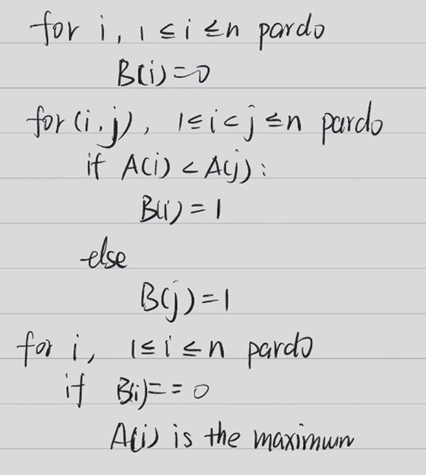 for i, 1 ≤ i ≤ n pardo
B(i)=0
for (i,j), 1≤i<j≤n pardo
if A(i) < A(j):
B(i) = 1
else
B(j)=1
for i, 1≤i≤n pardo
if B(i)== 0
A(i) is the maximun